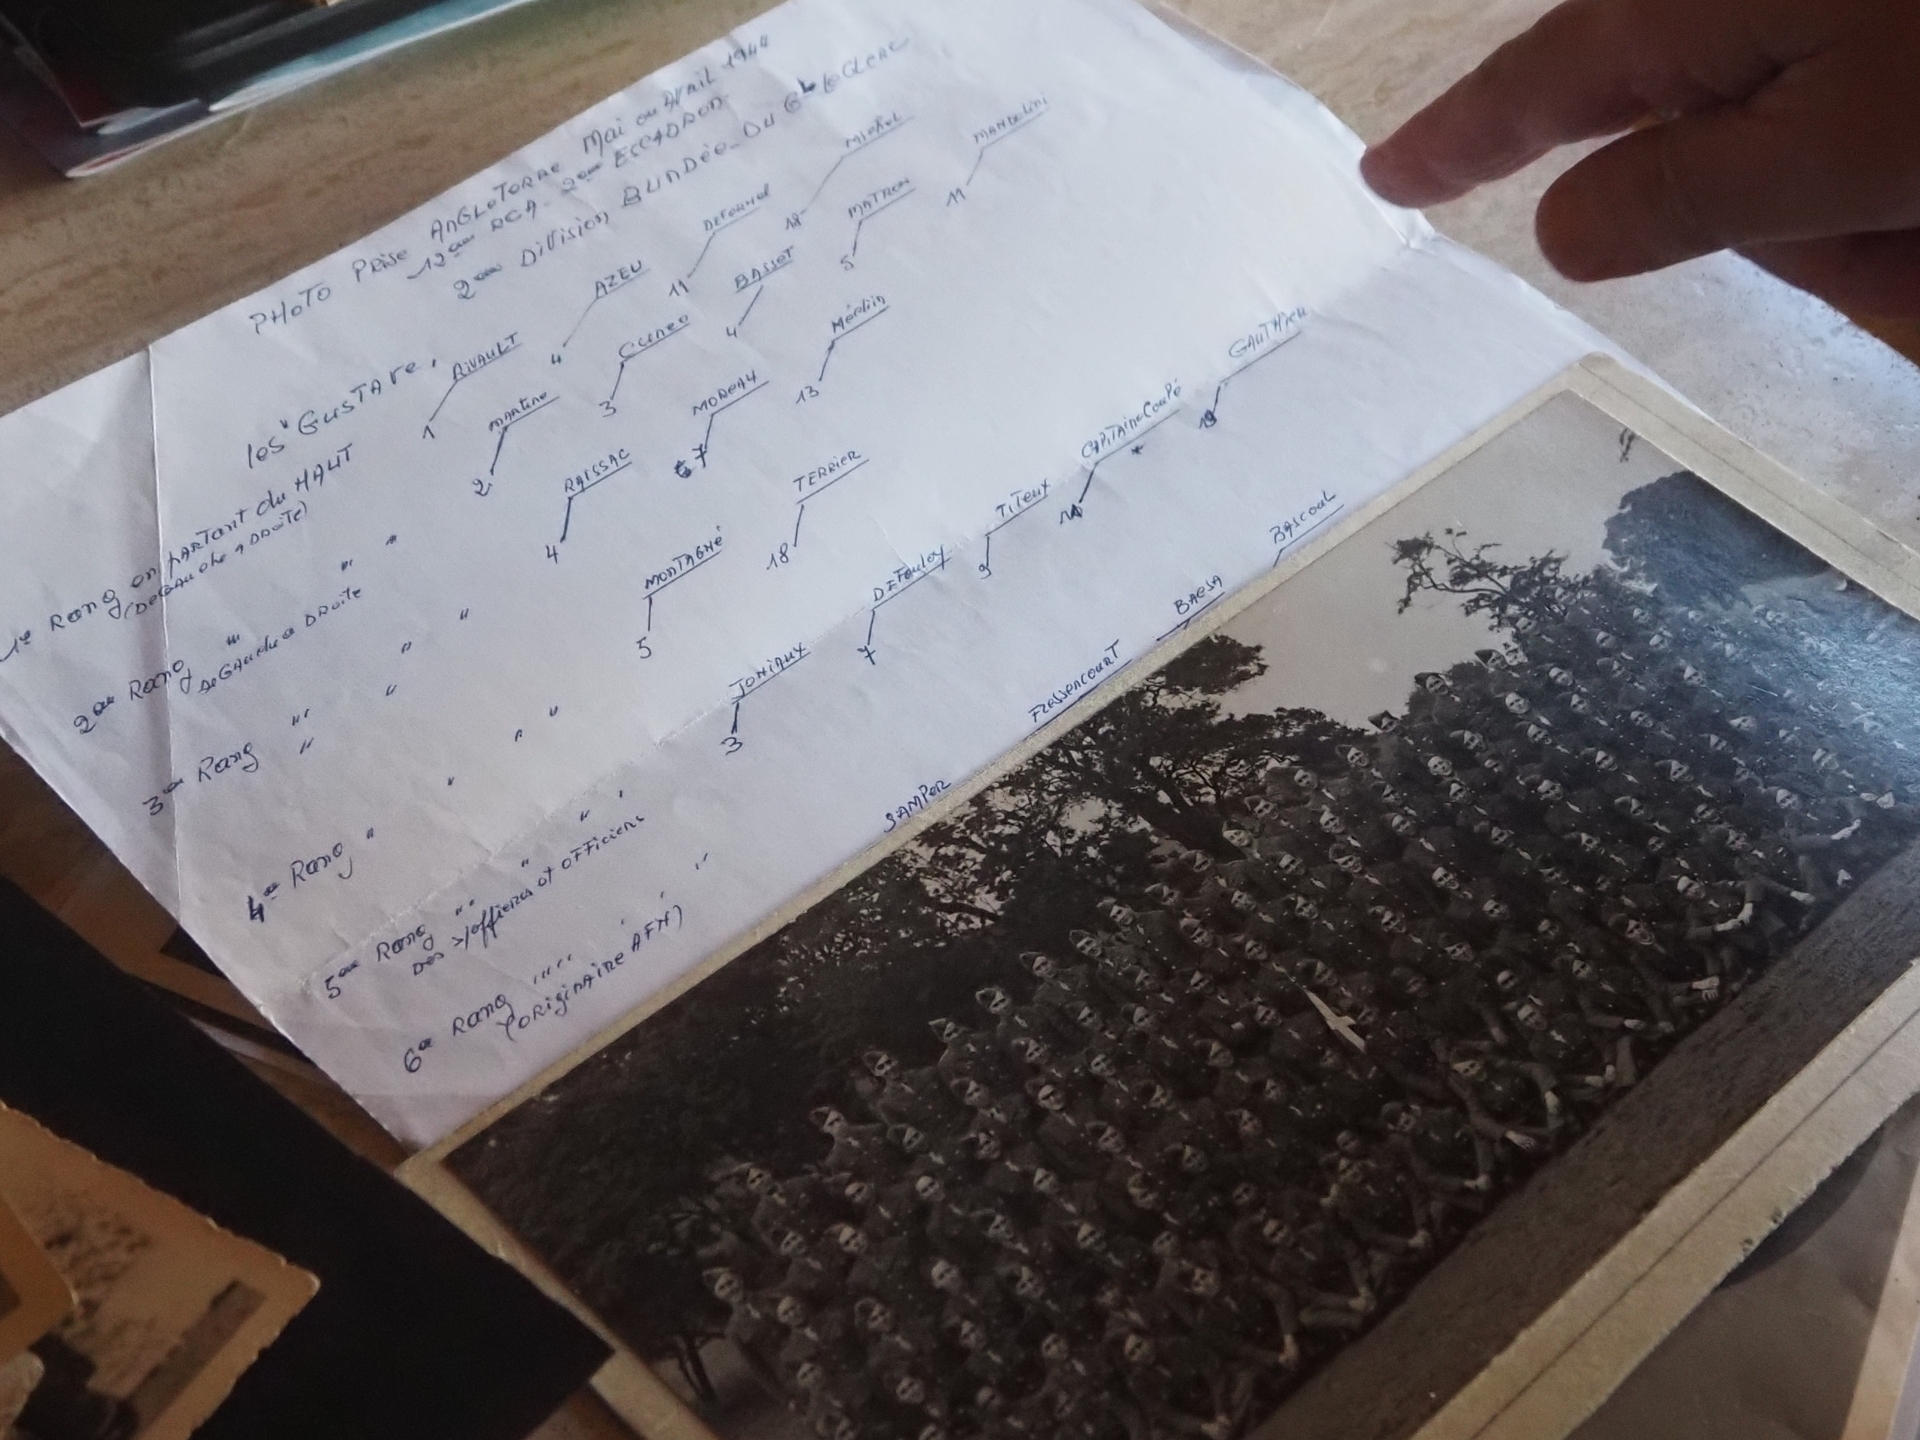 PHOTO PRISE ANGLETERRE Mai ou AVRIL 1944
12ème RCA - 2ème ESCADRON
2ème Division BLINDÉE - DU Gal LECLERC
les "GUSTAVE"
1er Rang en partant du HAUT
(DE GAUCHE A DROITE)
1 RIVAULT 4 AZEU 11 DEFORNEL 12 MICHEL
2ème Rang " " "
DE GAUCHE A DROITE
2 MARTINE 3 CUNEO 4 BASSOT 5 MATRON 11 MANDELINI
3ème Rang " " " "
"
4 RAISSAC 7 MOREAU 13 Médlin
4ème Rang " " " "
5 MONTAGNÉ 18 TERRIER
5ème Rang " " " "
DES S/officiers et OFFICIERS
3 JONIAUX 7 DEFOULOY 9 TITEUX 10 CAPITAINE COUPÉ 13 GAUTHIER
6ème Rang " " " "
(ORIGINAIRE AFN)
SAMPER FRESSENCOURT BAESA BASCOUL